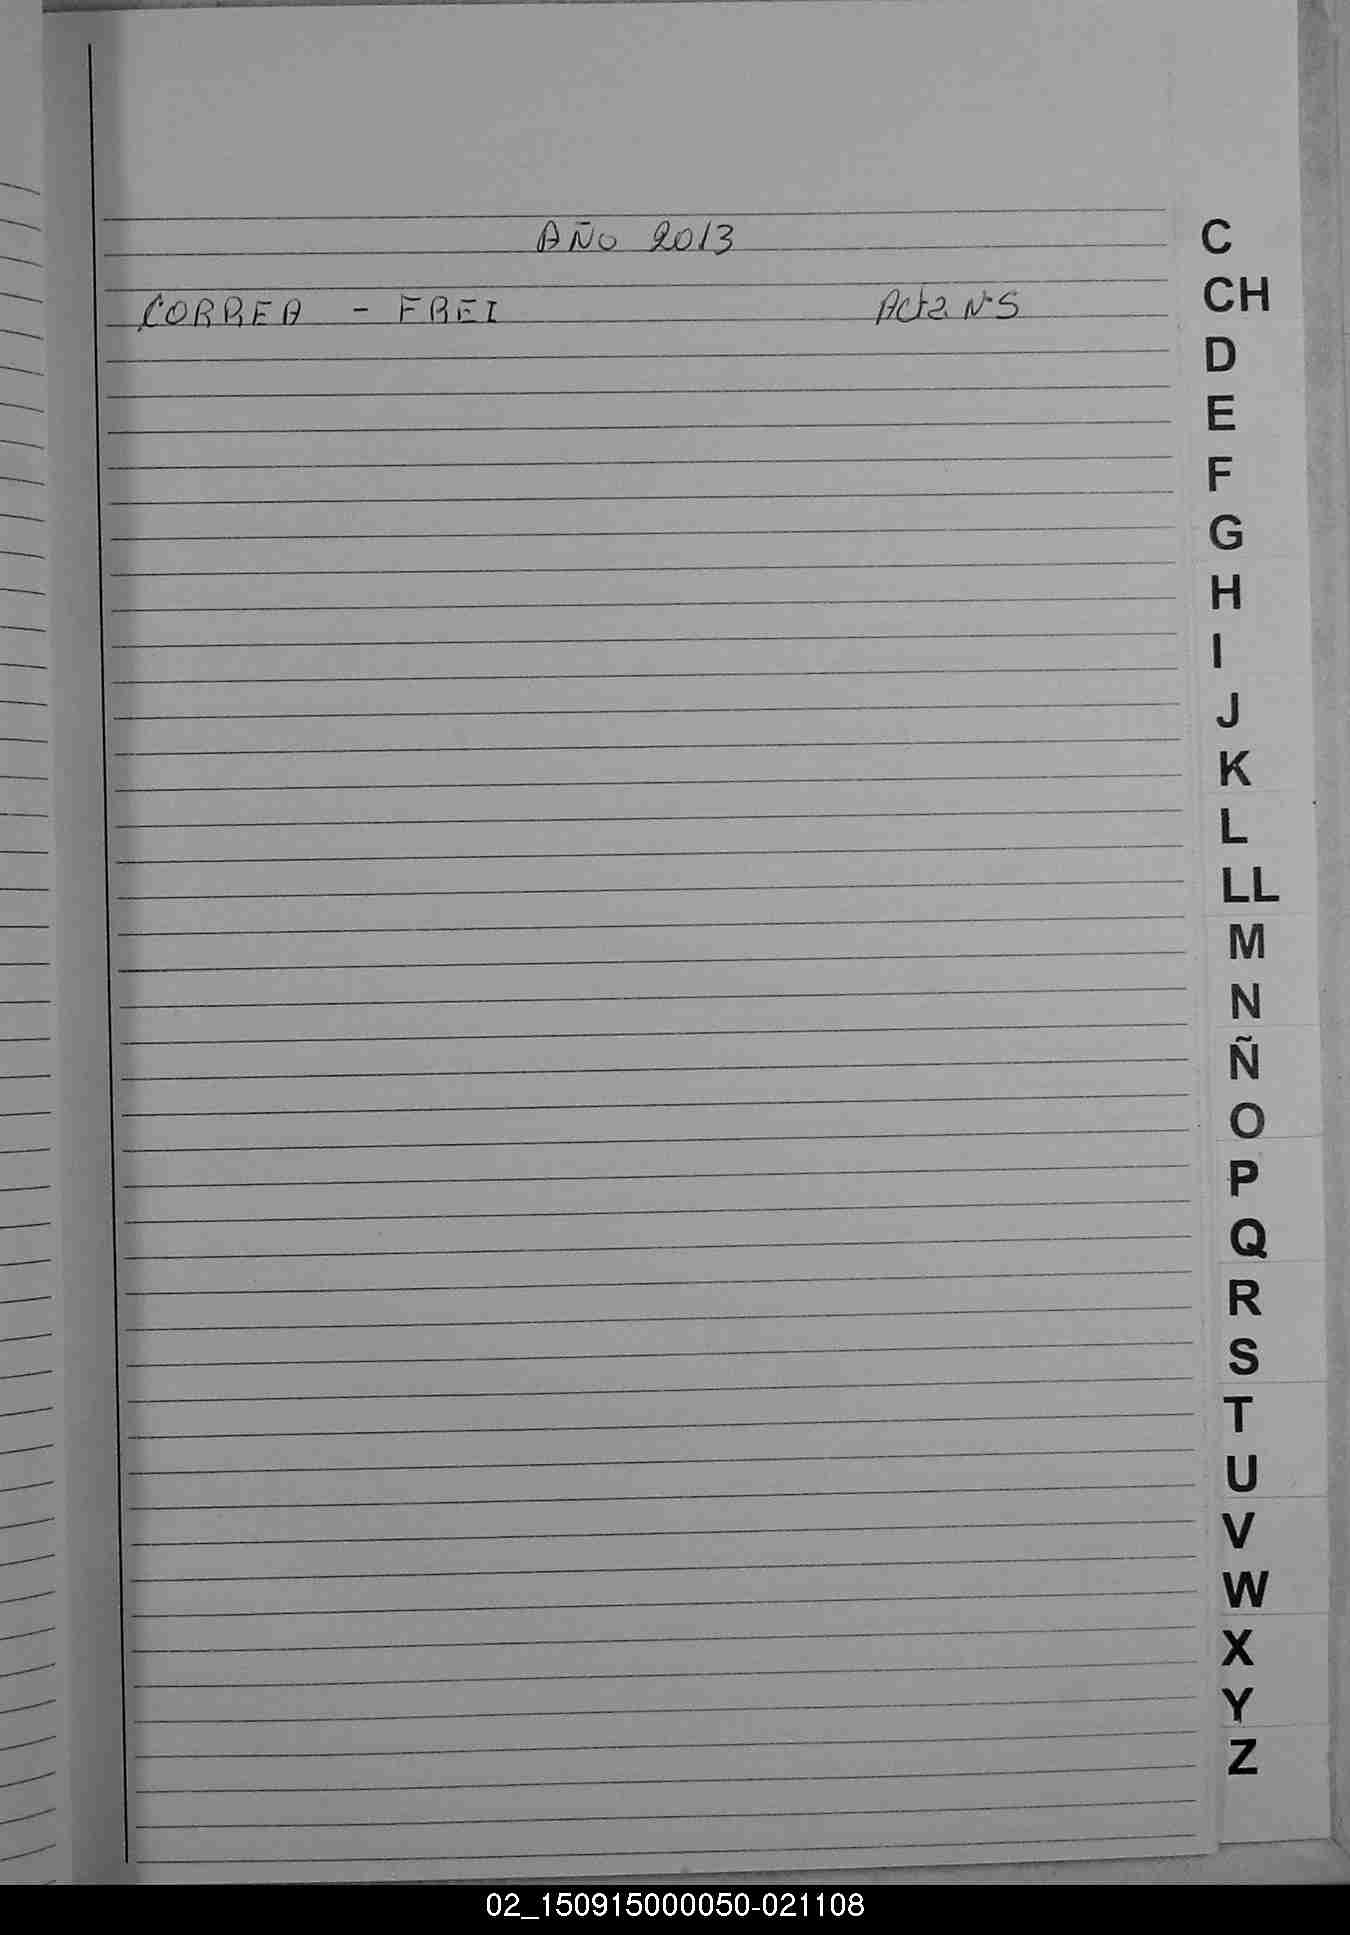 AÑO 2013
CORREA - FREI Acta N° 5
C
CH
D
E
F
G
H
I
J
K
L
LL
M
N
Ñ
O
P
Q
R
S
T
U
V
W
X
Y
Z
02_150915000050-021108